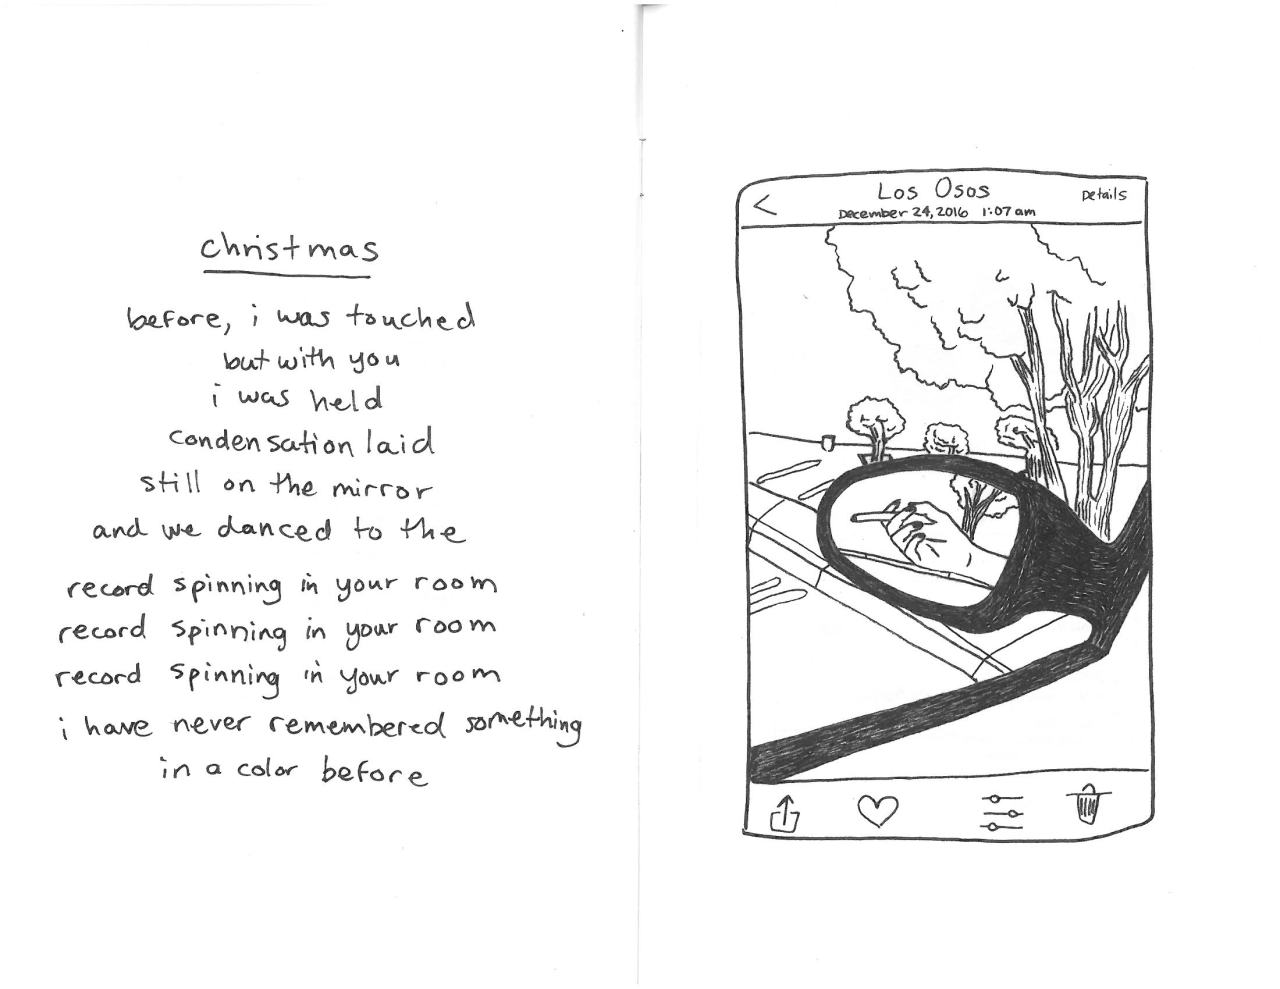 christmas
before, i was touched
but with you
i was held
condensation laid
still on the mirror
and we danced to the
record spinning in your room
record spinning in your room
record spinning in your room
i have never remembered something
in a color before
Los Osos
December 24, 2016 1:07 am
Details